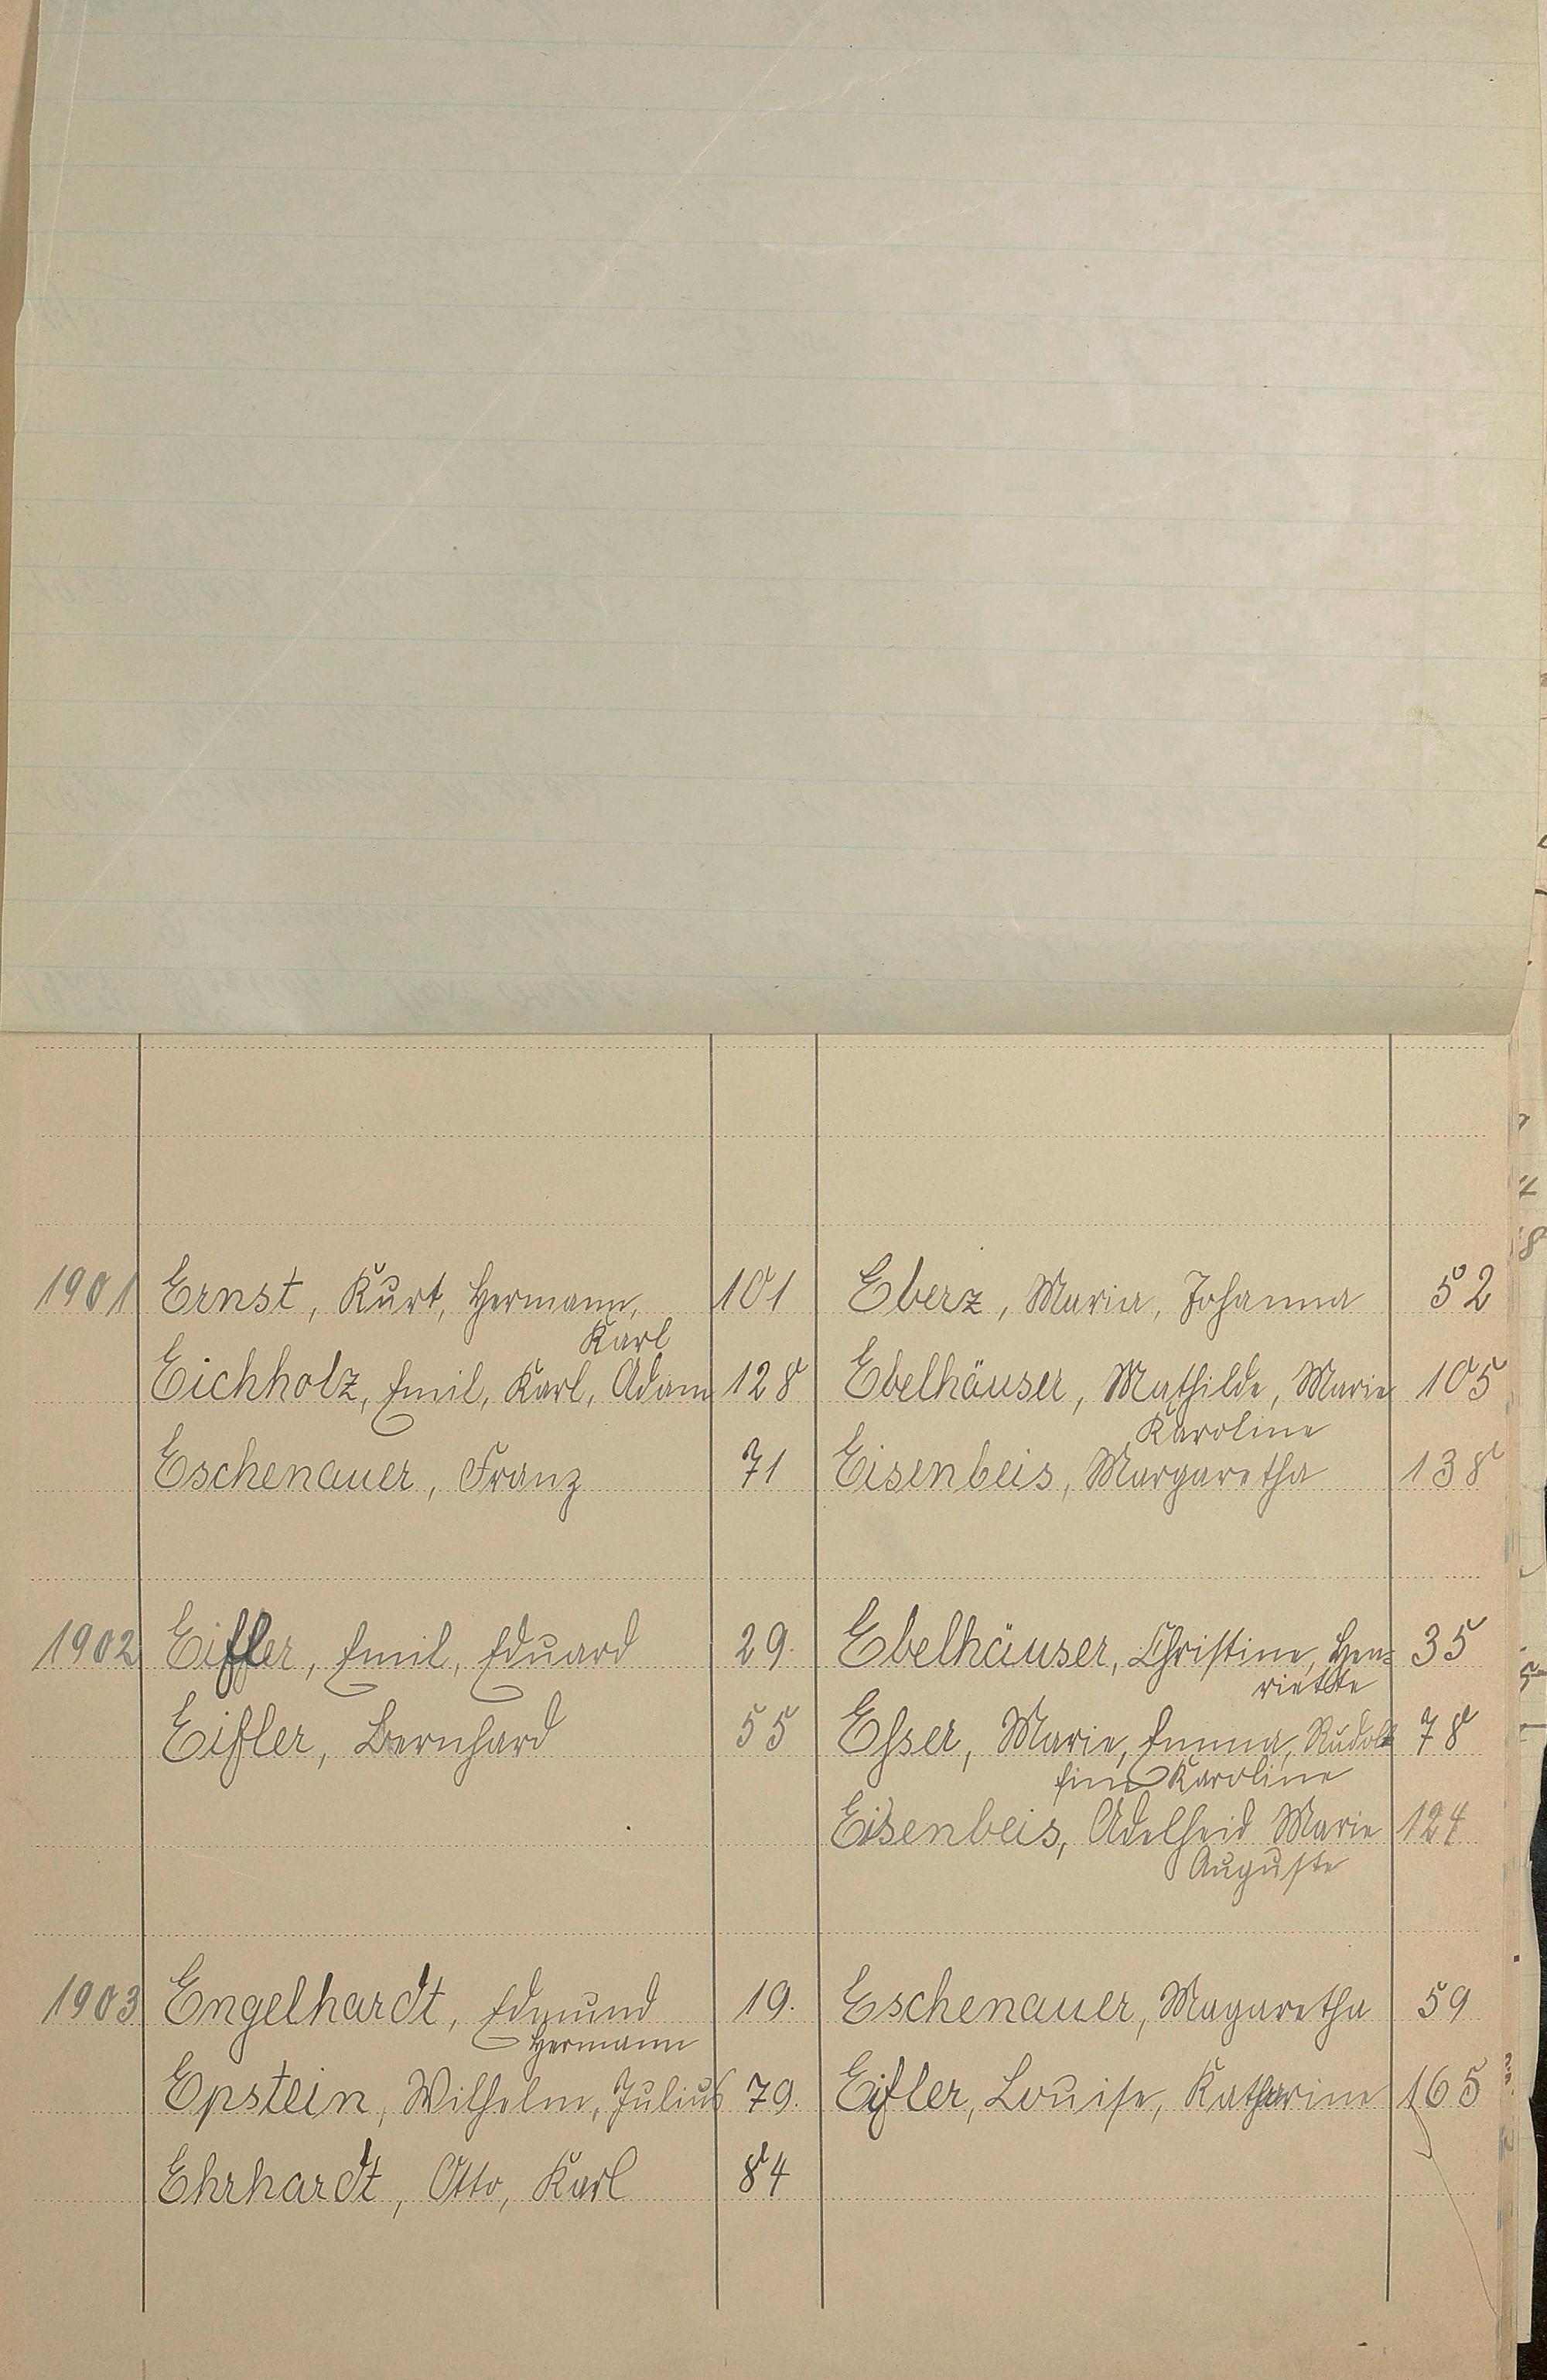 1901 Ernst, Kurt, Hermann, 101 Eberz, Maria, Johanna 52
Karl
Eichholz, Emil, Karl, Adam 128 Ebelhäuser, Mathilde, Marie 105
Karoline
Eschenauer, Franz 71 Eisenbeis, Margaretha 138
1902 Eifler, Emil, Eduard 29. Ebelhäuser, Christine, Hen= 35
riette
Eifler, Bernhard 55 Esser, Marie, Emma, Rudol 78
fine Karoline
Eisenbeis, Adelheid Marie 124
Auguste
1903 Engelhardt, Edmund 19. Eschenauer, Magaretha 59
Hermann
Epstein, Wilhelm, Julius 79. Eifler, Louise, Katharine 165
Ehrhardt, Otto, Karl 84